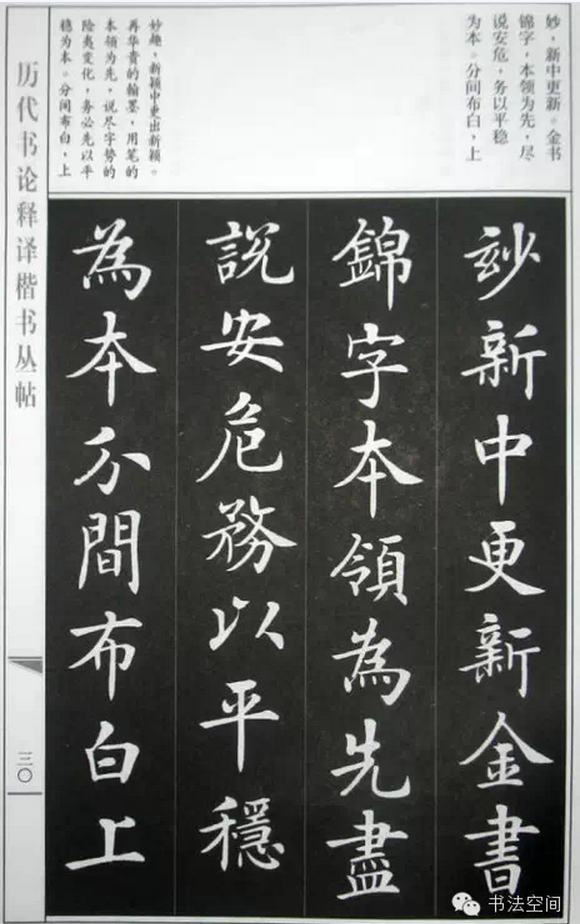 妙，新中更新。金书
锦字，本领为先，尽
说安危，务以平稳
为本。分间布白，上
妙趣，新颖中更出新颖。
再华贵的翰墨，用笔的
本领为先，说尽字势的
险夷变化，务必先以平
稳为本。分间布白，上
玅新中更新金書
錦字本領為先盡
說安危務以平穩
為本分間布白上
历代书论释译楷书丛帖
三〇
书法空间